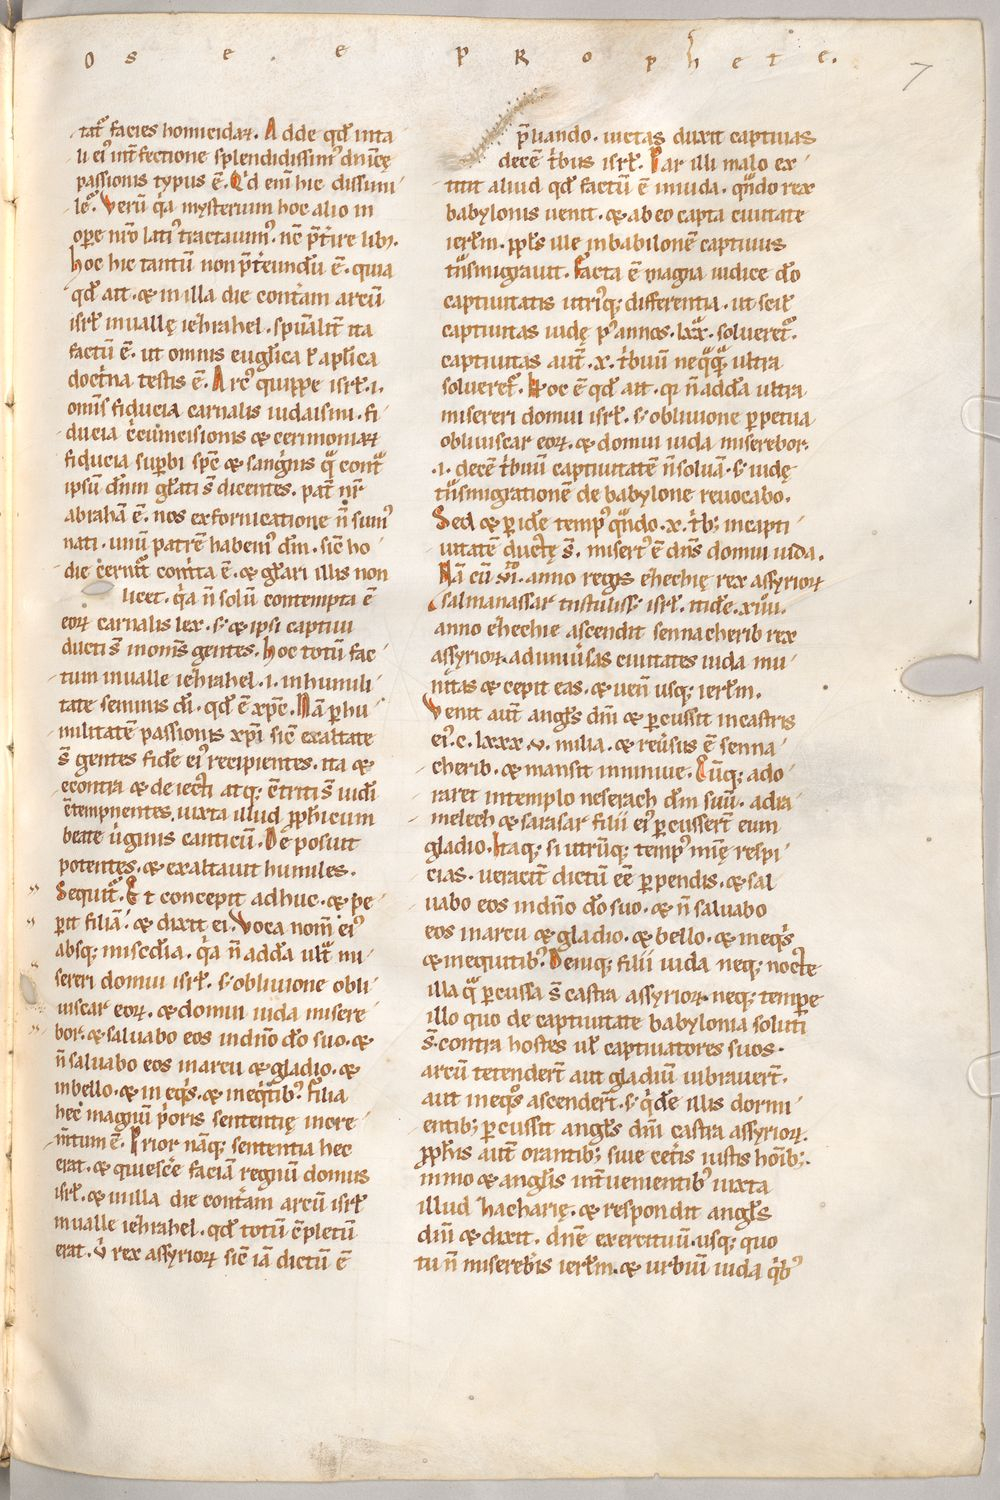 Osee prophete.
7
tat᷑ facies homicidaꝝ. Adde qđ inta
li ei᷒ int᷑fectione splendidissim᷒ dnicę
passionis typus ē. Qd enī hic dissimi
le᷑. Verū q̇a mysterium hoc alio in
oꝑe nr̄o lati᷒ tractauim᷒. nc̄ p̄t᷑ire libꝫ.
hoc hic tantū non p̄t᷑eundū ē. quia
qđ ait. & in illa die cont᷑am arcū
isrł in uallę iezrahel. spūalit᷑ ita
factū ē. ut omnis euglica ł aplica
doct᷑na testis ē. Arc᷒ quippe isrł .i.
omīs fiducia carnalis iudaismi. fi
ducia c̄cūncisionis & cerimoniaꝝ
fiducia suꝑbi spc̄ & sanguis q̄ cont᷑
ipsū dn̄m głati s̄ dicentes. pat᷑ nr̄
abrahā ē. nos ex fornicatione n̄ sum᷒
nati. unū patrē habem᷒ dm̄. sic̄ ho
die c̄ernit᷑ cont᷑ita ē. & głari illis non
licet. q̇a n̄ solū contempta ē
eoꝝ carnalis lex. s; & ipsi captiui
ducti s̄ in omīs gentes. hoc totū fac
tum in ualle iezrahel .i. in humili
tate seminis dī. qđ ē xpc̄. Nā ꝑ hu
militatē passionis xpī sic̄ exaltate
s̄ gentes fide ei᷒ recipientes. ita &
econtra & deiecti atq; c̄triti s̄ iudei
c̄tempnentes. iuxta illud ꝓphicum
beate u᷑ginis canticū. Deposuit
potentes. & exaltauit humiles.
Sequit᷑. Et concepit adhuc. & pe
ꝑit filiā. & dixit ei. Voca nom̄ ei᷒
absq; misc̄dia. q̇a n̄ addā ult᷑ mi
sereri domui isrł. s; obliuione obli
uiscar eoꝝ. & domui iuda misere
bor. & saluabo eos in dn̄o dō suo. &
n̄ saluabo eos in arcu & gladio. &
in bello. & in eq̇s. & in eq̇tib᷒. Filia
hec magnū ṗoris sententię incre
m̄tum ē. Prior nāq; sententia hec
erat. & quiesc̄e faciā regnū domus
isrł. & in illa die cont᷑am arcū isrł
in ualle iezrahel. qđ totū c̄pletū
erat. u᷑ rex assyrioꝝ sic̄ iā dictū ē
p̄liando. uictas duxit captiuas
decē t᷑bus isrł. Par illi malo ex
titit aliud qđ factū ē in iuda. qn̄do rex
babylonis uenit. & ab eo capta ciuitate
ierłm. ppłs ille in babilonē captiuus
tn̄smigrauit. Facta ē magna iudice dō
captiuitatis utriq; differentia. ut scił
captiuitas iudę p᷒ annos .lxx. solueret᷑.
captiuitas aut̄ .x. t᷑buū neq̄q̄ ultra
solueret᷑. Hoc ē qđ ait. q̇ n̄ addā ultra
misereri domui isrł. s; obliuione ꝑpetua
obliuiscar eoꝝ. & domui iuda miserebor.
.i. decē t᷑buū captiuitatē n̄ soluā. s; iudę
tn̄smigrationē de babylone reuocabo.
Sed & ꝑ idē temp᷒ qn̄do .x. t᷑b; in capti
uitatē ductę s̄. misert᷒ ē dn̄s domui iuda.
Nā cū .vi. anno regis ezechię rex assyrioꝝ
salmanassar tn̄stuliss; isrł. itidē .xiiii.
anno ezechie ascendit sennacherib rex
assyrioꝝ ad uniu᷑sas ciuitates iuda mu
nitas & cepit eas. & uen̄ usq; ierłm.
Venit aut̄ angłs dn̄i & ꝑcussit in castris
ei᷒ .c.lxxx.v. milia. & reu᷑sus ē senna
cherib. & mansit in niniue. Cūq; ado
raret in templo neserach dm̄ suū. adra
melech & sarasar filii ei᷒ ꝑcusserr̄t eum
gladio. Itaq; si utrūq; temp᷒ mīę respi
cias. ueracit᷑ dictū eē ꝑpendis. & sal
uabo eos in dn̄o dō suo. & n̄ saluabo
eos in arcu & gladio. & bello. & in eq̇s
& in equitib᷒. Deniq; filii iuda neq; nocte
illa q̄ ꝑcussa s̄ castra assyrioꝝ. neq; tempe
illo quo de captiuitate babylonia soluti
s̄. contra hostes uł captiuatores suos.
arcū tetendert̄ aut gladiū uibrauert̄.
aut in eq̊s ascendert̄. s; q̇dē illis dormi
entib; ꝑcussit angłs dn̄i castra assyrioꝝ.
ꝓphis aut̄ orantib; siue cet᷑is iustis hoīb;.
immo & angłis int᷑uenientib᷒ iuxta
illud zacharię. & respondit angłs
dn̄i & dixit. dn̄e exercituū. usq; quo
tu n̄ misereb᷑is ierłm. & urbiū iuda q̇b᷒